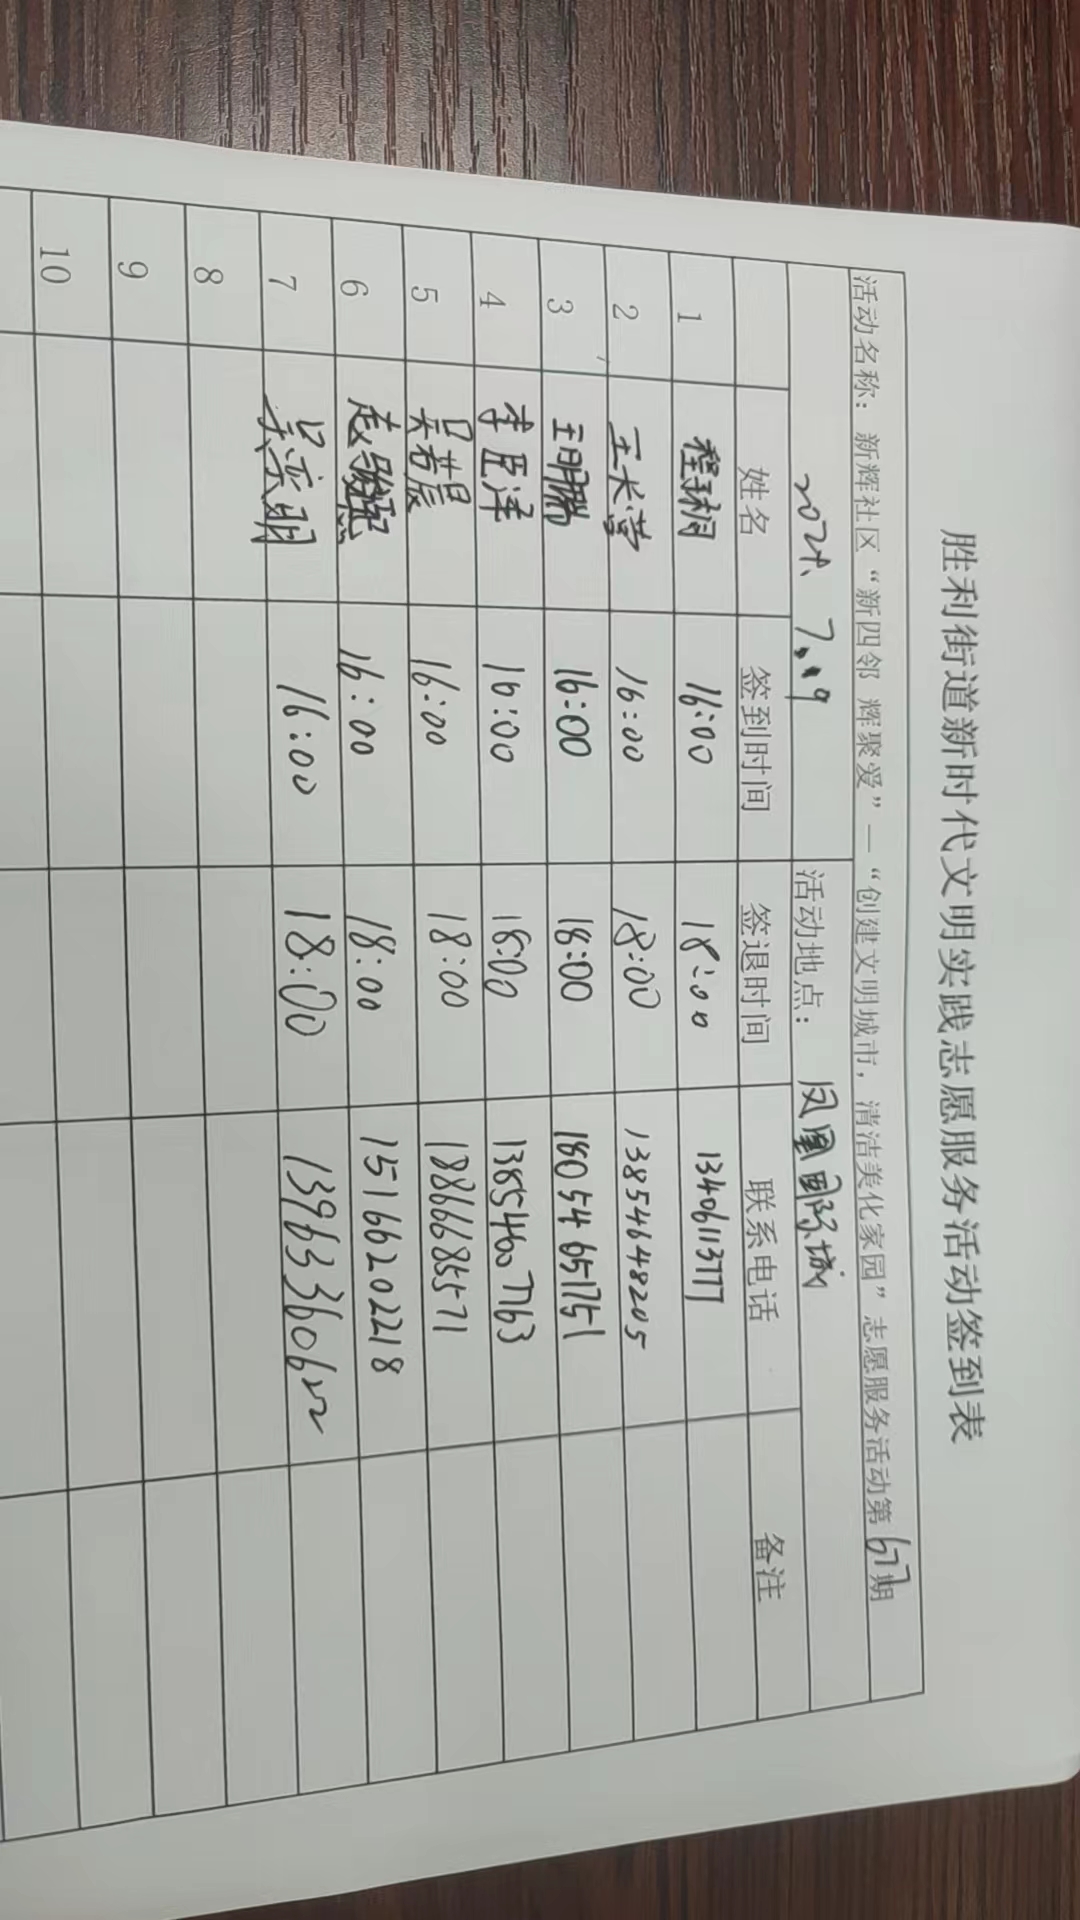 胜利街道新时代文明实践志愿服务活动签到表
活动名称：新辉社区“新四邻 辉聚爱”—“创建文明城市，清洁美化家园”志愿服务活动第677期
2024、7.19 活动地点：凤凰国际城
姓名 签到时间 签退时间 联系电话 备注
1 16:00 18:00 13406113777
2 王长营 16:00 18:00 13854648205
3 王明瑞 16:00 18:00 18054651751
4 李臣泽 16:00 18:00 13854607763
5 吴若晨 16:00 18:00 18866685571
6 赵 16:00 18:00 15166202218
7 吴奕明 16:00 18:00 13963360622
8
9
10